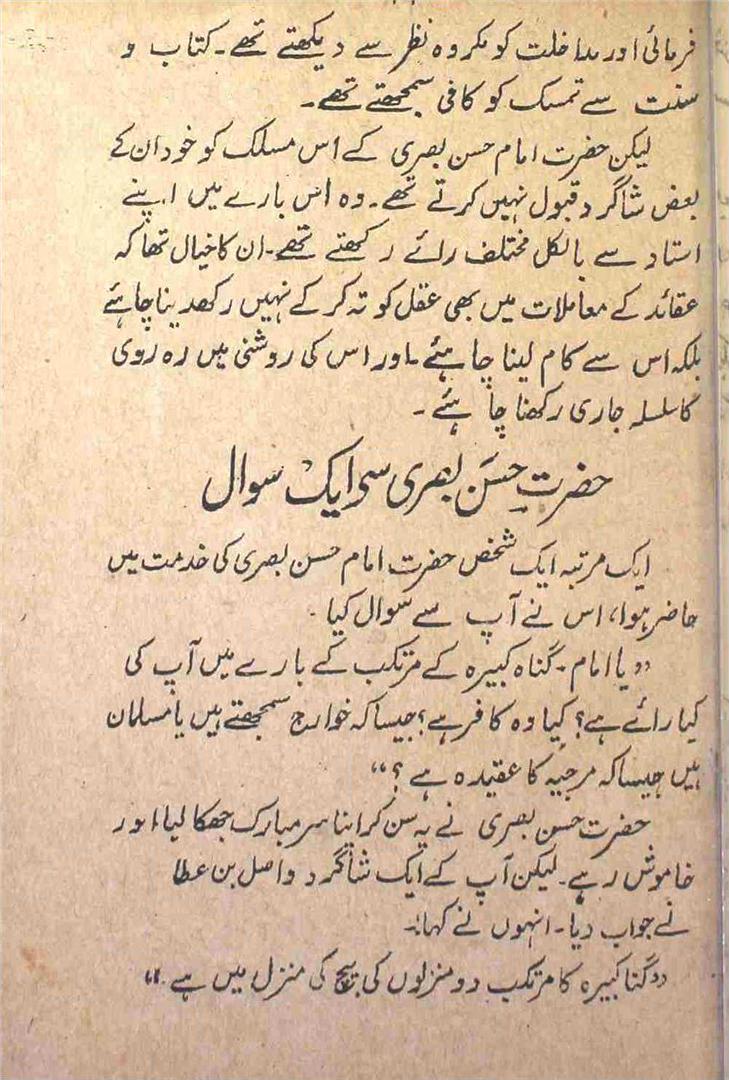 فرمائی اور مداخلت کو مکروہ نظر سے دیکھتے تھے۔ کتاب و
سنت سے تمسک کو کافی سمجھتے تھے۔
لیکن حضرت امام حسن بصری کے اس مسلک کو خود ان کے
بعض شاگرد قبول نہیں کرتے تھے۔ وہ اس بارے میں اپنے
استاد سے بالکل مختلف رائے رکھتے تھے۔ ان کا خیال تھا کہ
عقائد کے معاملات میں بھی عقل کو تہ کر کے نہیں رکھدینا چاہئے
بلکہ اس سے کام لینا چاہئے۔ اور اس کی روشنی میں رہ روی
کا سلسلہ جاری رکھنا چاہئے۔
حضرت حسن بصری سی ایک سوال
ایک مرتبہ ایک شخص حضرت امام حسن بصری کی خدمت میں
حاضر ہوا، اس نے آپ سے سوال کیا۔
”یا امام۔ گناہ کبیرہ کے مرتکب کے بارے میں آپ کی
کیا رائے ہے؟ کیا وہ کافر ہے؟ جیسا کہ خوارج سمجھتے ہیں یا مسلمان
ہیں جیسا کہ مرجیہ کا عقیدہ ہے؟“
حضرت حسن بصری نے یہ سن کر اپنا سر مبارک جھکا لیا اور
خاموش رہے۔ لیکن آپ کے ایک شاگرد واصل بن عطا
نے جواب دیا۔ انہوں نے کہا:۔
”گنا کبیرہ کا مرتکب دو منزلوں کی بیچ کی منزل میں ہے۔“